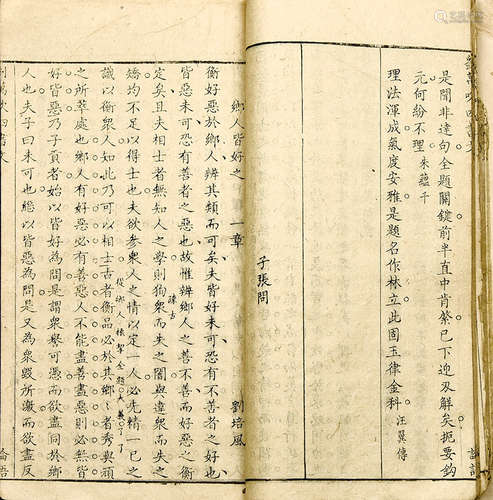 是聞非達句全題關鍵前半直中肯綮已下迎刃解矣扼要鉤
元何紛不理 朱蘊千
理法渾成氣度安雅是題名作林立此固玉律金科 汪巽傳
子張問
鄉人皆好之 一章 劉培風
衡好惡於鄉人辨其類而可矣夫皆好未可恐有不善者之好也
皆惡未可恐有善者之惡也故惟辨鄉人之善不善而好惡之衡
定矣且夫相士者無知人之學則狥衆而失之闇與違衆而失之
矯均不足以得士也夫欲參衆人之情以定一人必先精一己之
識以衡衆人知此乃可以相士古者衡品必於其鄉鄉者秀與頑
之所萃處也鄉人有好惡必有善惡人不能盡善盡惡則必無皆
好皆惡乃子貢者始以皆好為問是謂衆譽可憑而欲盡同於鄉
人也夫子曰未可也繼以皆惡為問是又為衆毀所激而欲盡反
論語